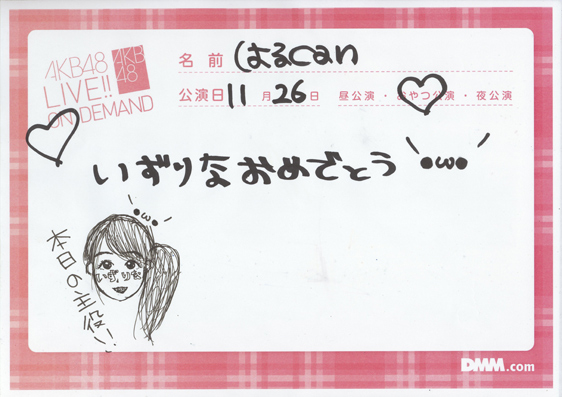 AKB48
LIVE!!
ON DEMAND
AKB
48
名前 はるcan
公演日 11月26日 昼公演・おやつ公演・夜公演
いずりなおめでとう '•ω•'
'•ω•'
いずりな
本日の主役!!
DMM.com